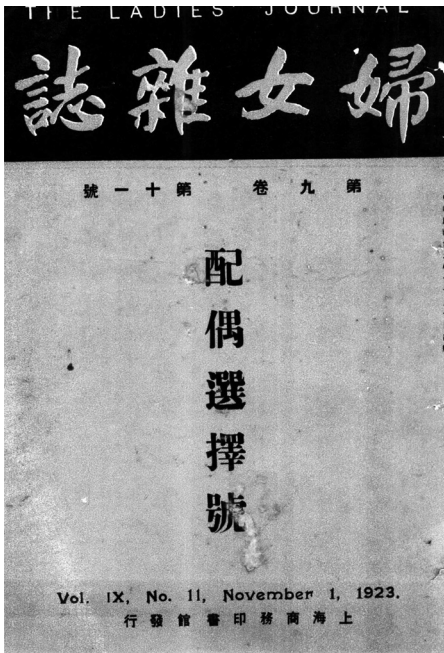 THE LADIES' JOURNAL
婦女雜誌
第九卷 第十一號
配偶選擇號
Vol. IX, No. 11, November 1, 1923.
上海商務印書館發行